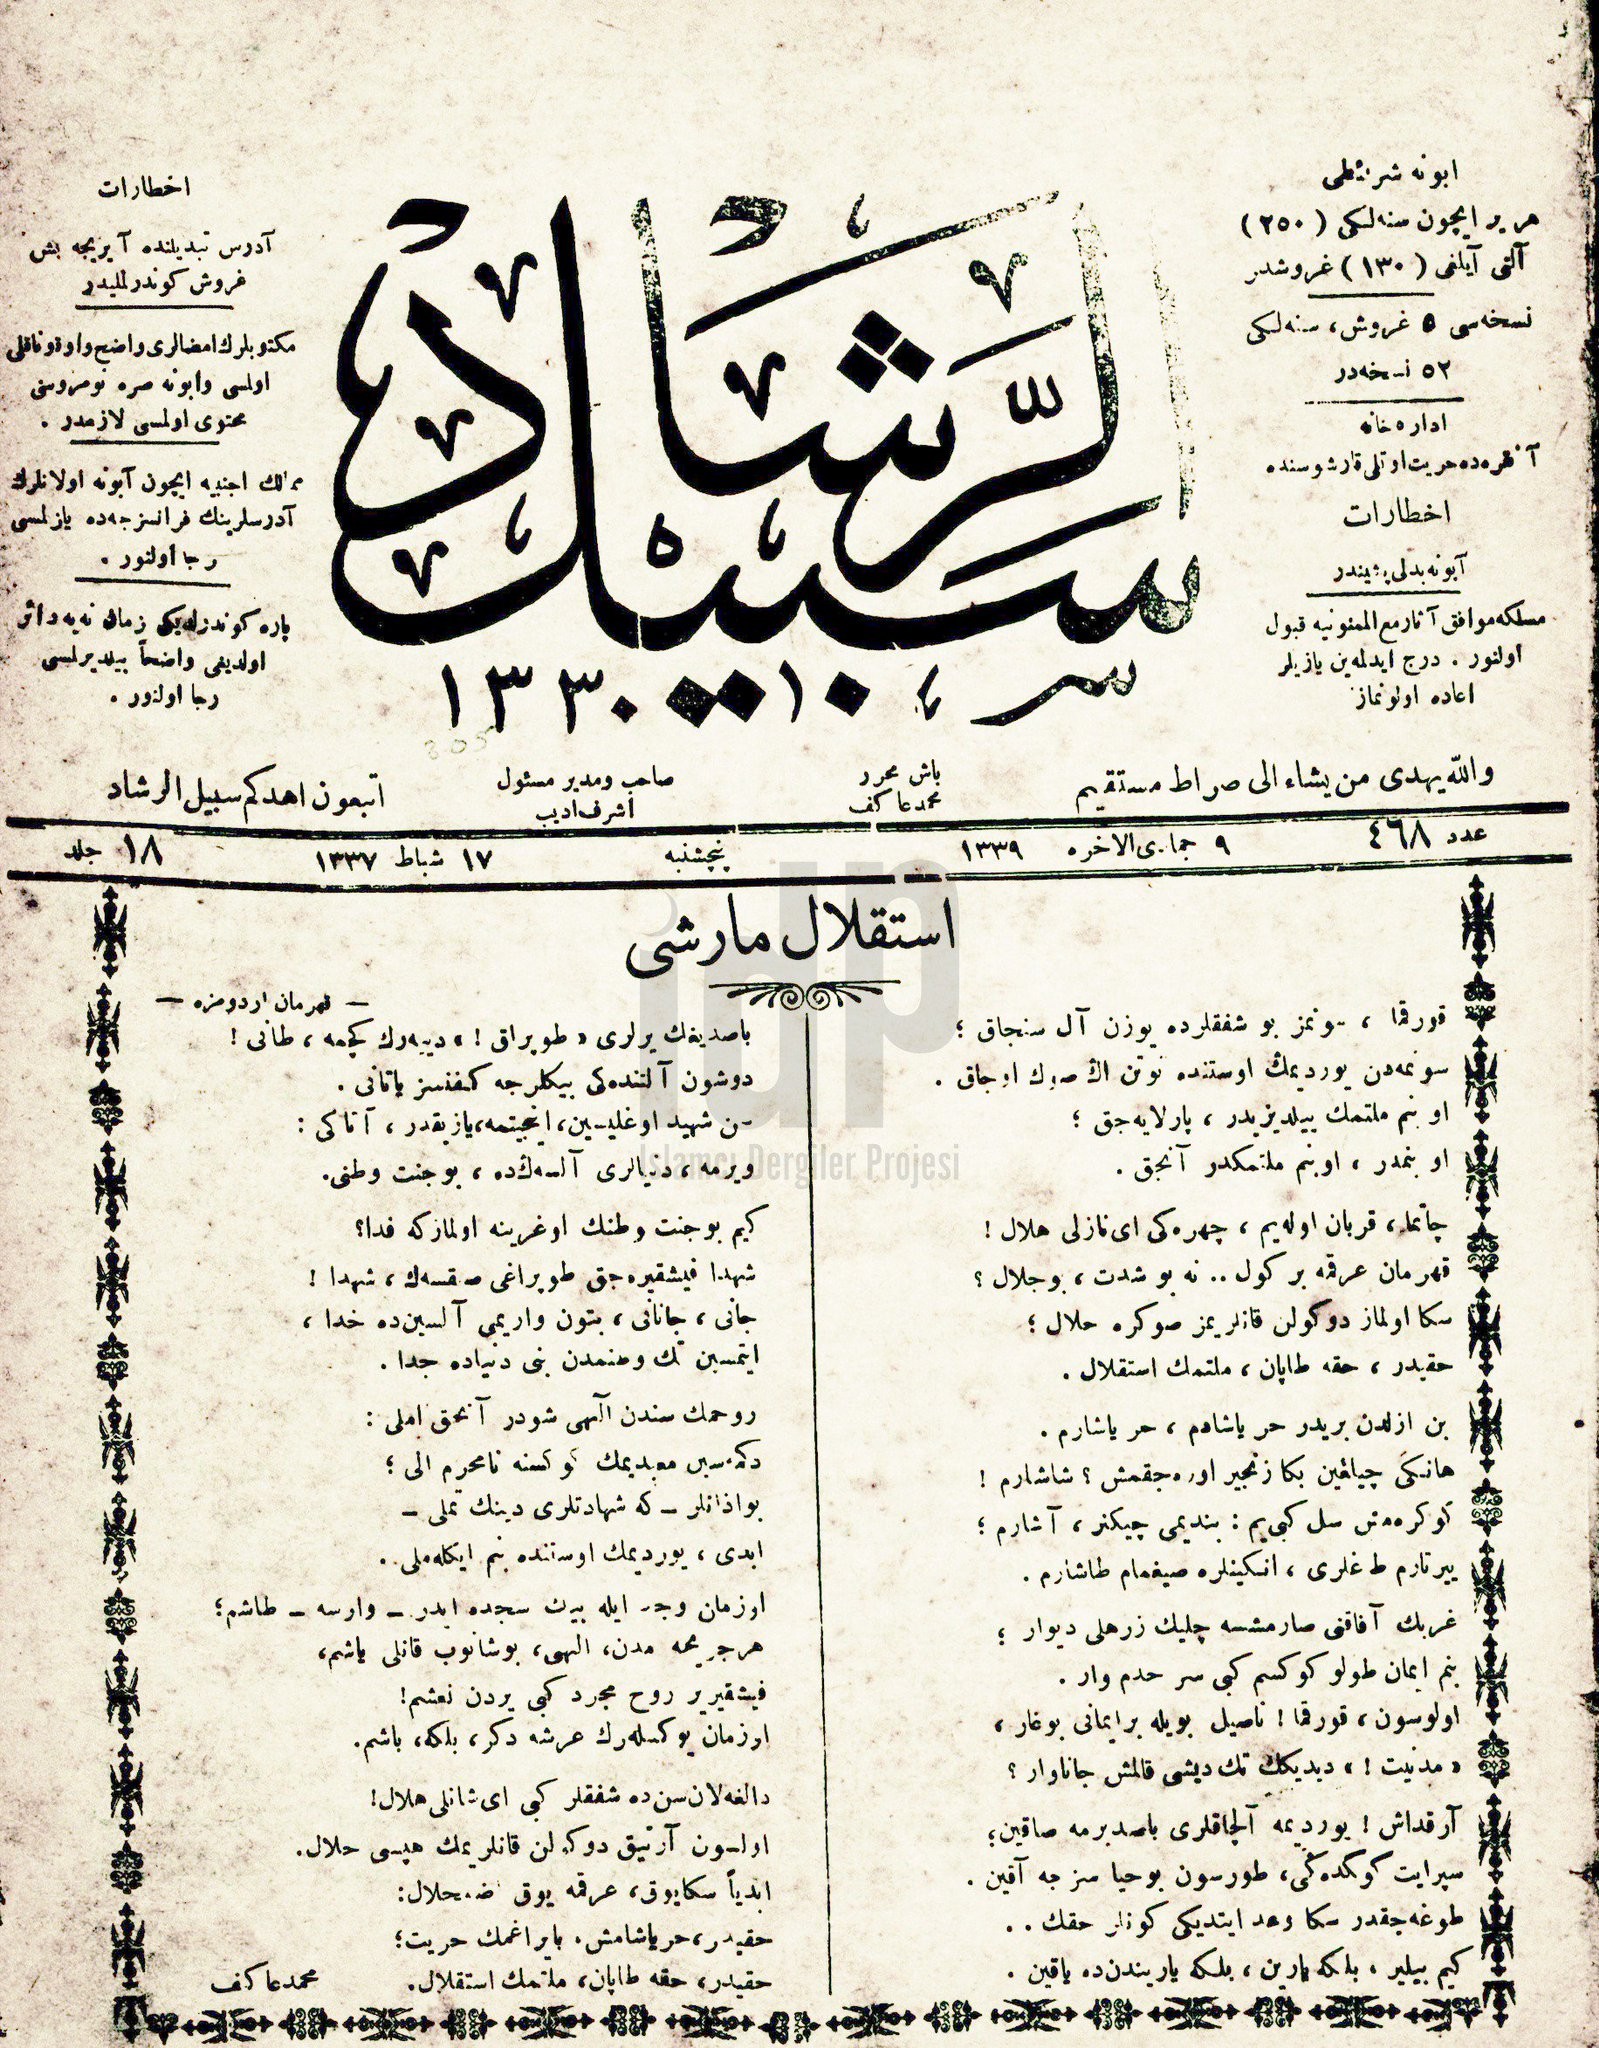 ابونه شرائطی
هر یر ایچون سنه‌لکی (٢٥٠)
آلتی آیلغی (١٣٠) غروشدر
نسخه‌سی ٥ غروش، سنه‌لکی
٥٢ نسخه‌در
اداره خانه
آنقره‌ده حریت اوتلی قارشوسنده
اخطارات
آبونه بدلی پشیندر
مسلکه موافق آثار مع الممنونیه قبول
اولنور . درج ایدلمه‌ین یازیلر
اعاده اولونماز
سبیل الرشاد
١٣٣٠
اخطارات
آدرس تبدیلنده آیریجه بش
غروش کوندرلملیدر
مکتوبلرك امضالری واضح و اوقوناقلی
اولمسی و ابونه صره نومروسنی
محتوی اولمسی لازمدر .
ممالك اجنبیه ایچون آبونه اولانلرك
آدرسلرینك فرانسزجه‌ده یازلمسی
رجا اولنور .
پاره کوندرلدیکی زمان نه‌یه دائر
اولدیغی واضحاً بیلدیرلمسی
رجا اولنور .
والله یهدی من یشاء الی صراط مستقیم
باش محرر
محمد عاکف
صاحب و مدیر مسئول
اشرف ادیب
اتبعون اهدکم سبیل الرشاد
عدد ٤٦٨
٩ جمادی الاخره ١٣٣٩
پنجشنبه
١٧ شباط ١٣٣٧
١٨ جلد
استقلال مارشی
— قهرمان اردومزه —
قورقما ، سونمز بو شفقلرده یوزن آل سنجاق ؛
سونمه‌دن یوردیمك اوستنده توتن اڭ صوك اوجاق .
او بنم ملتمك ییلدیزیدر ، پارلایه‌جق ؛
او بنمدر ، او بنم ملتمکدر آنجق .
چاتما ، قربان اوله‌یم ، چهره‌کی ای نازلی هلال !
قهرمان عرقمه بر کول .. نه بو شدت ، بو جلال ؟
سکا اولماز دوکولن قانلریمز صوکره حلال ؛
حقیدر ، حقه طاپان ، ملتمك استقلال .
بن ازلدن بریدر حر یاشادم ، حر یاشارم .
هانکی چیلغین بکا زنجیر اوره‌جقمش ؟ شاشارم !
کوکره‌مش سل کبی‌یم : بندیمی چیکنر ، آشارم ؛
ییرتارم طاغلری ، انکینلره صیغمام طاشارم .
غربك آفاقنی صارمشسه چلیك زرهلی دیوار ؛
بنم ایمان طولو کوکسم کبی سر حدم وار .
اولوسون ، قورقما ! ناصیل بویله بر ایمانی بوغار ،
« مدنیت ! » دیدیکك تك دیشی قالمش جاناوار ؟
آرقداش ! یوردیمه آلچاقلری باصدیرمه صاقین ؛
سپر ایت کوکده‌کی ، طورسون بو حیا سزجه آقین .
طوغه‌جقدر سکا وعد ایتدیکی کونلر حقك . .
کیم بیلیر ، بلکه یارین ، بلکه یاریندن‌ده یاقین .
باصدیغك یرلری « طوپراق ! » دییه‌رك کچمه ، طانی !
دوشون آلتنده‌کی بیکلرجه کفنسز یاتانی .
سن شهید اوغلیسین ، اینجیتمه ، یازیقدر ، آتاکی :
ویرمه ، دنیالری آلسه‌ڭ‌ده ، بو جنت وطنی.
کیم بو جنت وطنك اوغرینه اولمازکه فدا؟
شهدا فیشقیره‌جق طوپراغی صقسه‌ك ، شهدا !
جانی ، جانانی ، بتون واریمی آلسین‌ده خدا ،
ایتمسین تك وطنمدن بنی دنیاده جدا .
روحمك سندن الٓهی شودر آنجق املی :
دکمه‌سین معبدیمك کوکسنه نامحرم الی ؛
بو اذانلر – که شهادتلری دینك تملی –
ابدی ، یوردیمك اوستنده بنم ایکله‌ملی .
او زمان وجد ایله بیك سجده ایدر – وارسه – طاشم؛
هر جریحه‌مدن، الهی، بوشانوب قانلی یاشم،
فیشقیریر روح مجرد کبی یردن نعشم!
او زمان یوکسله‌رك عرشه دکر، بلکه، باشم.
دالغه‌لان سن‌ده شفقلر کبی ای شانلی هلال!
اولسون آرتیق دوکیلن قانلریمك هپسی حلال.
ابدیاً سکا یوق، عرقمه یوق اضمحلال:
حقیدر، حر یاشامش. بایراغمك حریت؛
حقیدر، حقه طاپان، ملتمك استقلال.
محمد عاکف
idp
İslamcı Dergiler Projesi